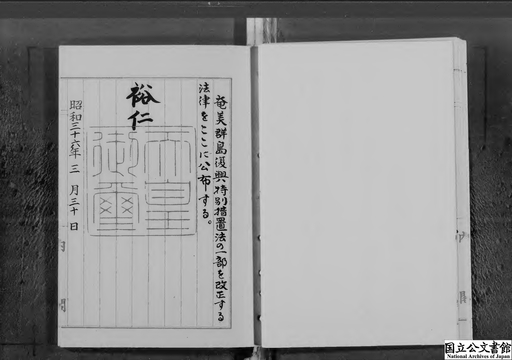 奄美群島復興特別措置法の一部を改正する
法律をここに公布する。
裕仁
天皇
御璽
昭和三十六年三月三十日
国立公文書館
National Archives of Japan